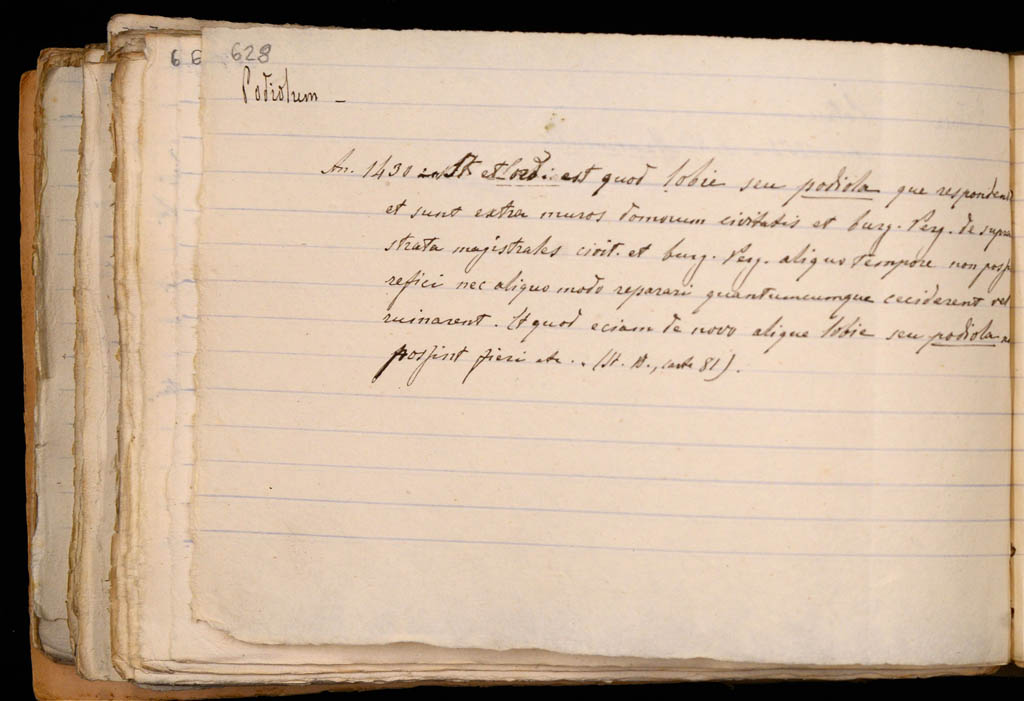 66
628
Podiolum –
An. 1430 St. et ord. est quod lobie seu podiola que respondent
et sunt extra muros domorum civitatis et burg. Perg. de supra
strata magistrales civit. et burg. Perg. aliquo tempore non poss
refici nec aliquo modo reparari quantumcumque ceciderent vel
ruinarent. Et quod eciam de novo alique lobie seu podiola
possint fieri etc.. (St. D., carte 81).